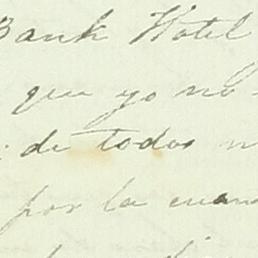 Bank Hotel
que yo no
de todos
por la